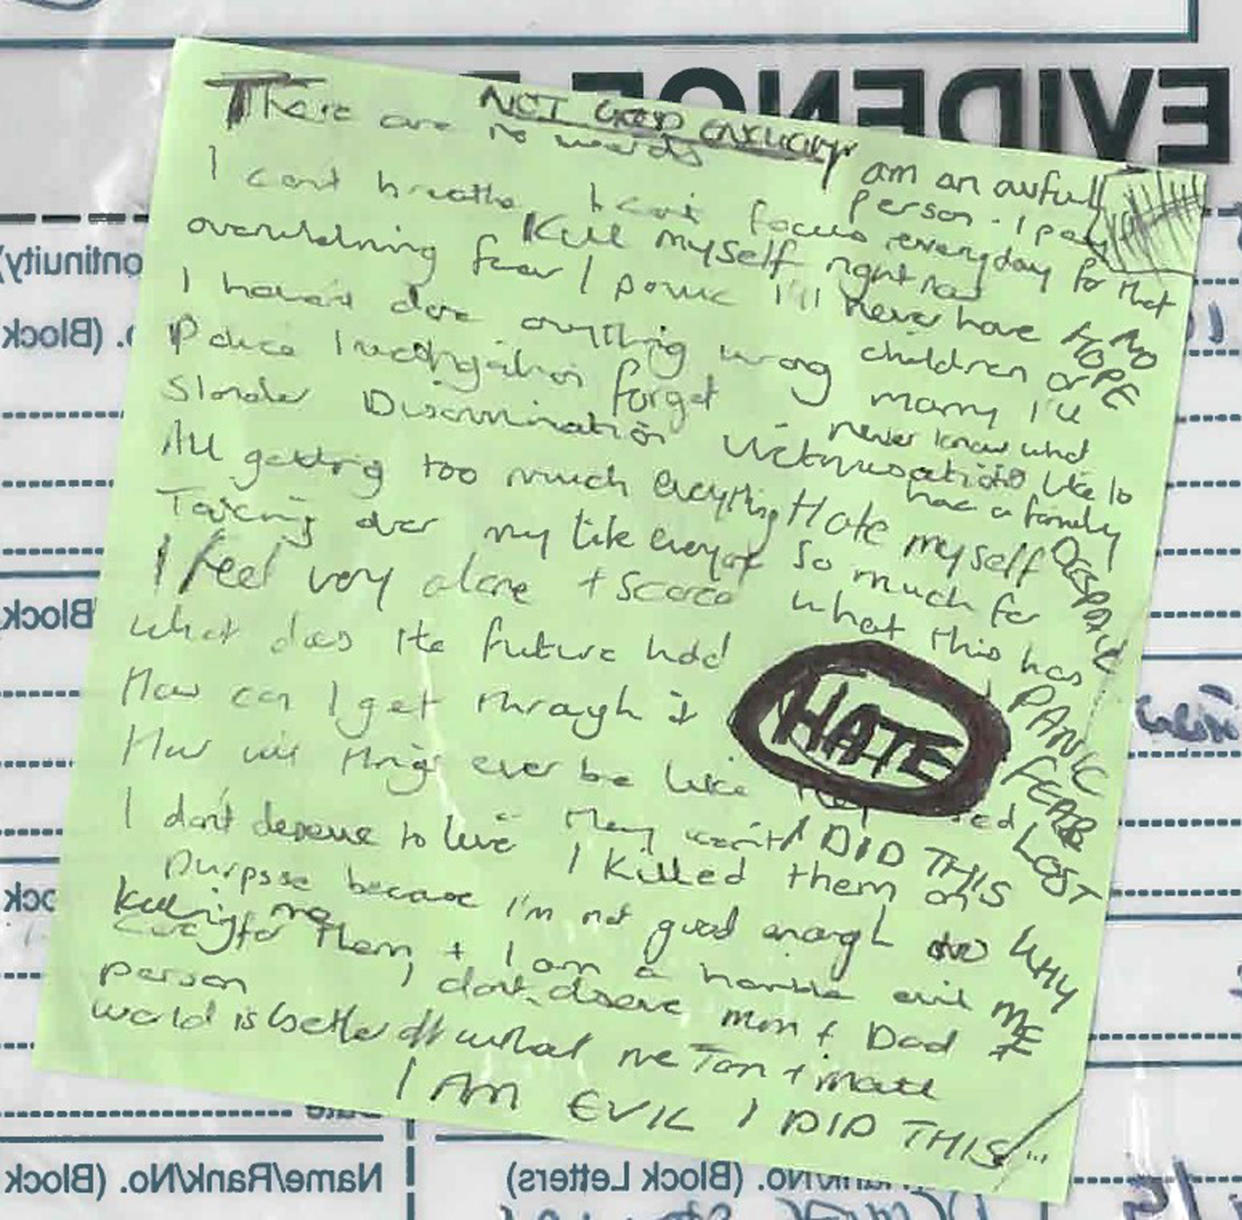 EVIDENCE
NOT GOOD ENOUGH
There are no words
I am an awful person - I pay everyday for that
I can't breathe I can't focus
Kill myself right now
overwhelming fear / panic
I'll never have children or marry I'll never know what it's like to have a family
NO HOPE
I haven't done anything wrong
Police investigation forget
Slander Discrimination Victimisation
All getting too much everything
Taking over my life everyone
Hate myself so much for what this has
DESPAIR
I feel very alone + scared
What does the future hold
How can I get through it
How will things ever be like they
HATE
PANIC
FEAR
LOST
I don't deserve to live They won't
I DID THIS
WHY ME
I killed them on purpose because I'm not good enough to care for them + I am a horrible evil person
killing me
I don't deserve mum + Dad
world is better off without me
I AM EVIL I DID THIS
Name/Rank/No. (Block
(Block Letters)
Date